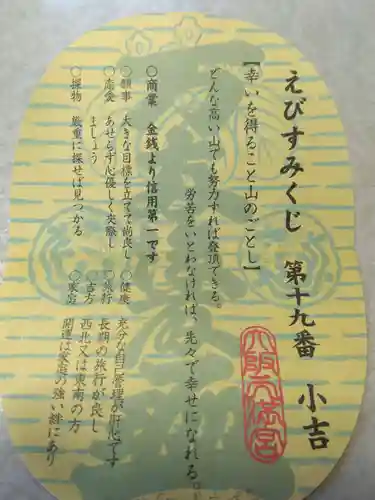 えびすみくじ 第十九番 小吉
【幸いを得ること山のごとし】
どんな高い山でも努力すれば登頂できる。
労苦をいとわなければ、先々で幸せになれる。
○商業 金銭より信用第一です
○願事 大きな目標を立てて尚良し
○恋愛 あせらず心優しく交際し
ましょう
○捜物 厳重に探せば見つかる
○健康 充分な自己管理が肝心です
○旅行 長期の旅行が良し
○吉方 西北又は東南の方
○家宅 開運は家族の強い絆にあり